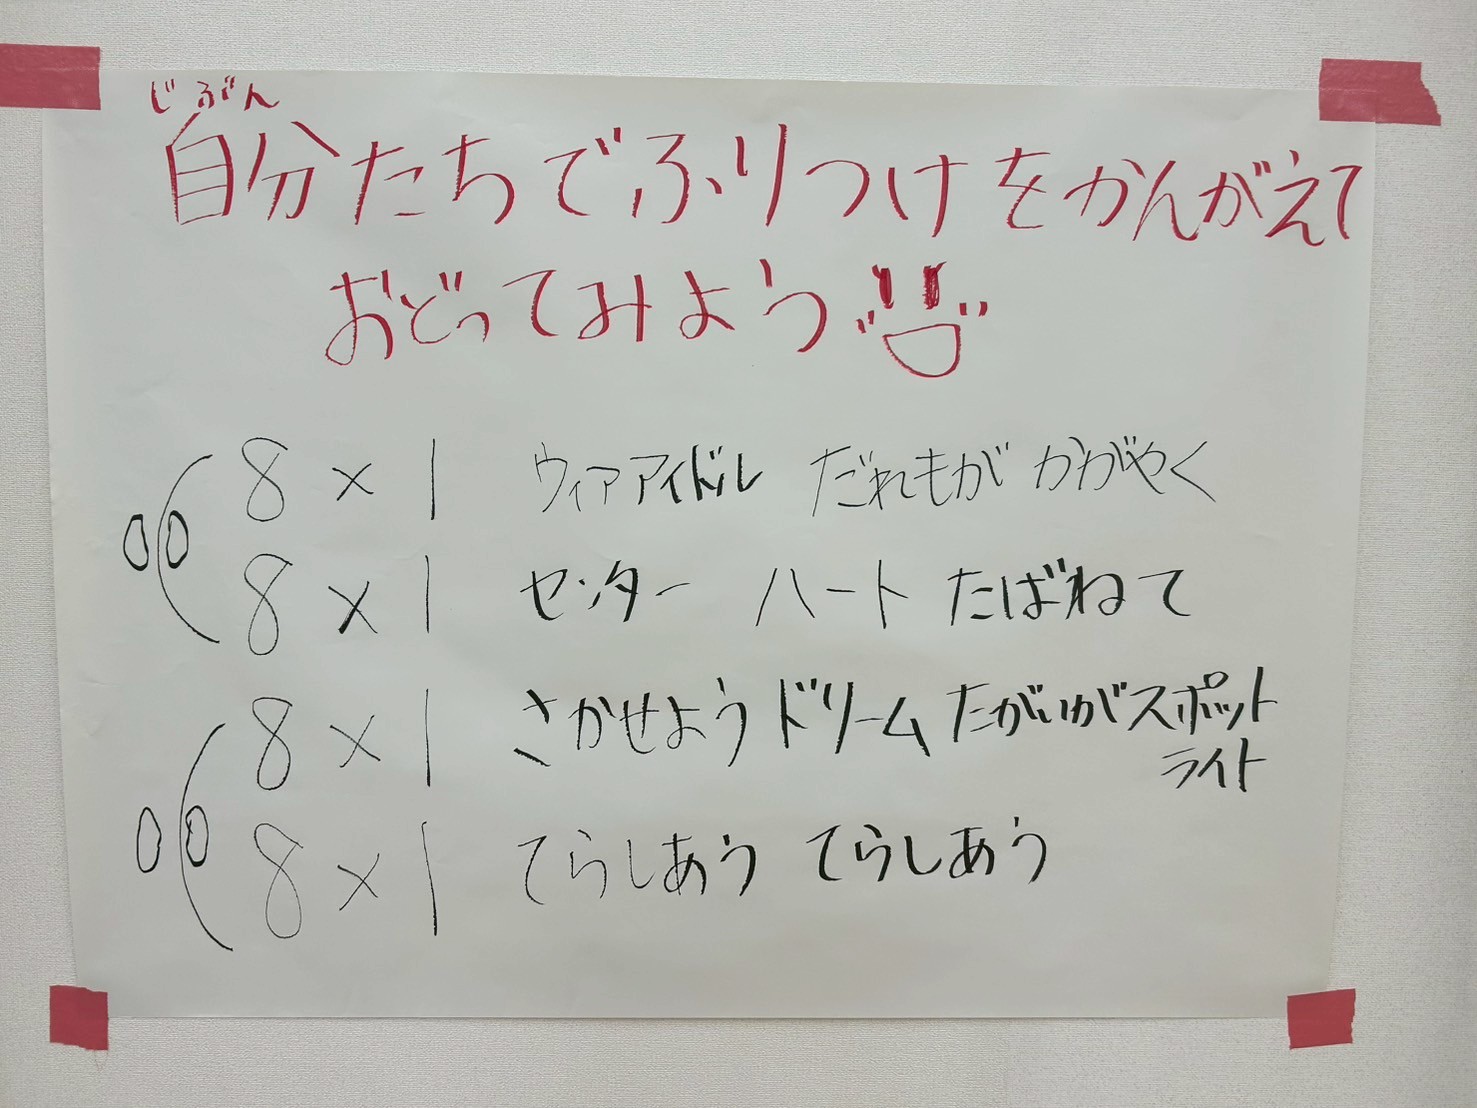 じぶん
自分たちでふりつけをかんがえて
おどってみよう
8×1 ウィアアイドル だれもが かがやく
8×1 センター ハート たばねて
8×1 さかせよう ドリーム たがいがスポット
ライト
8×1 てらしあう てらしあう